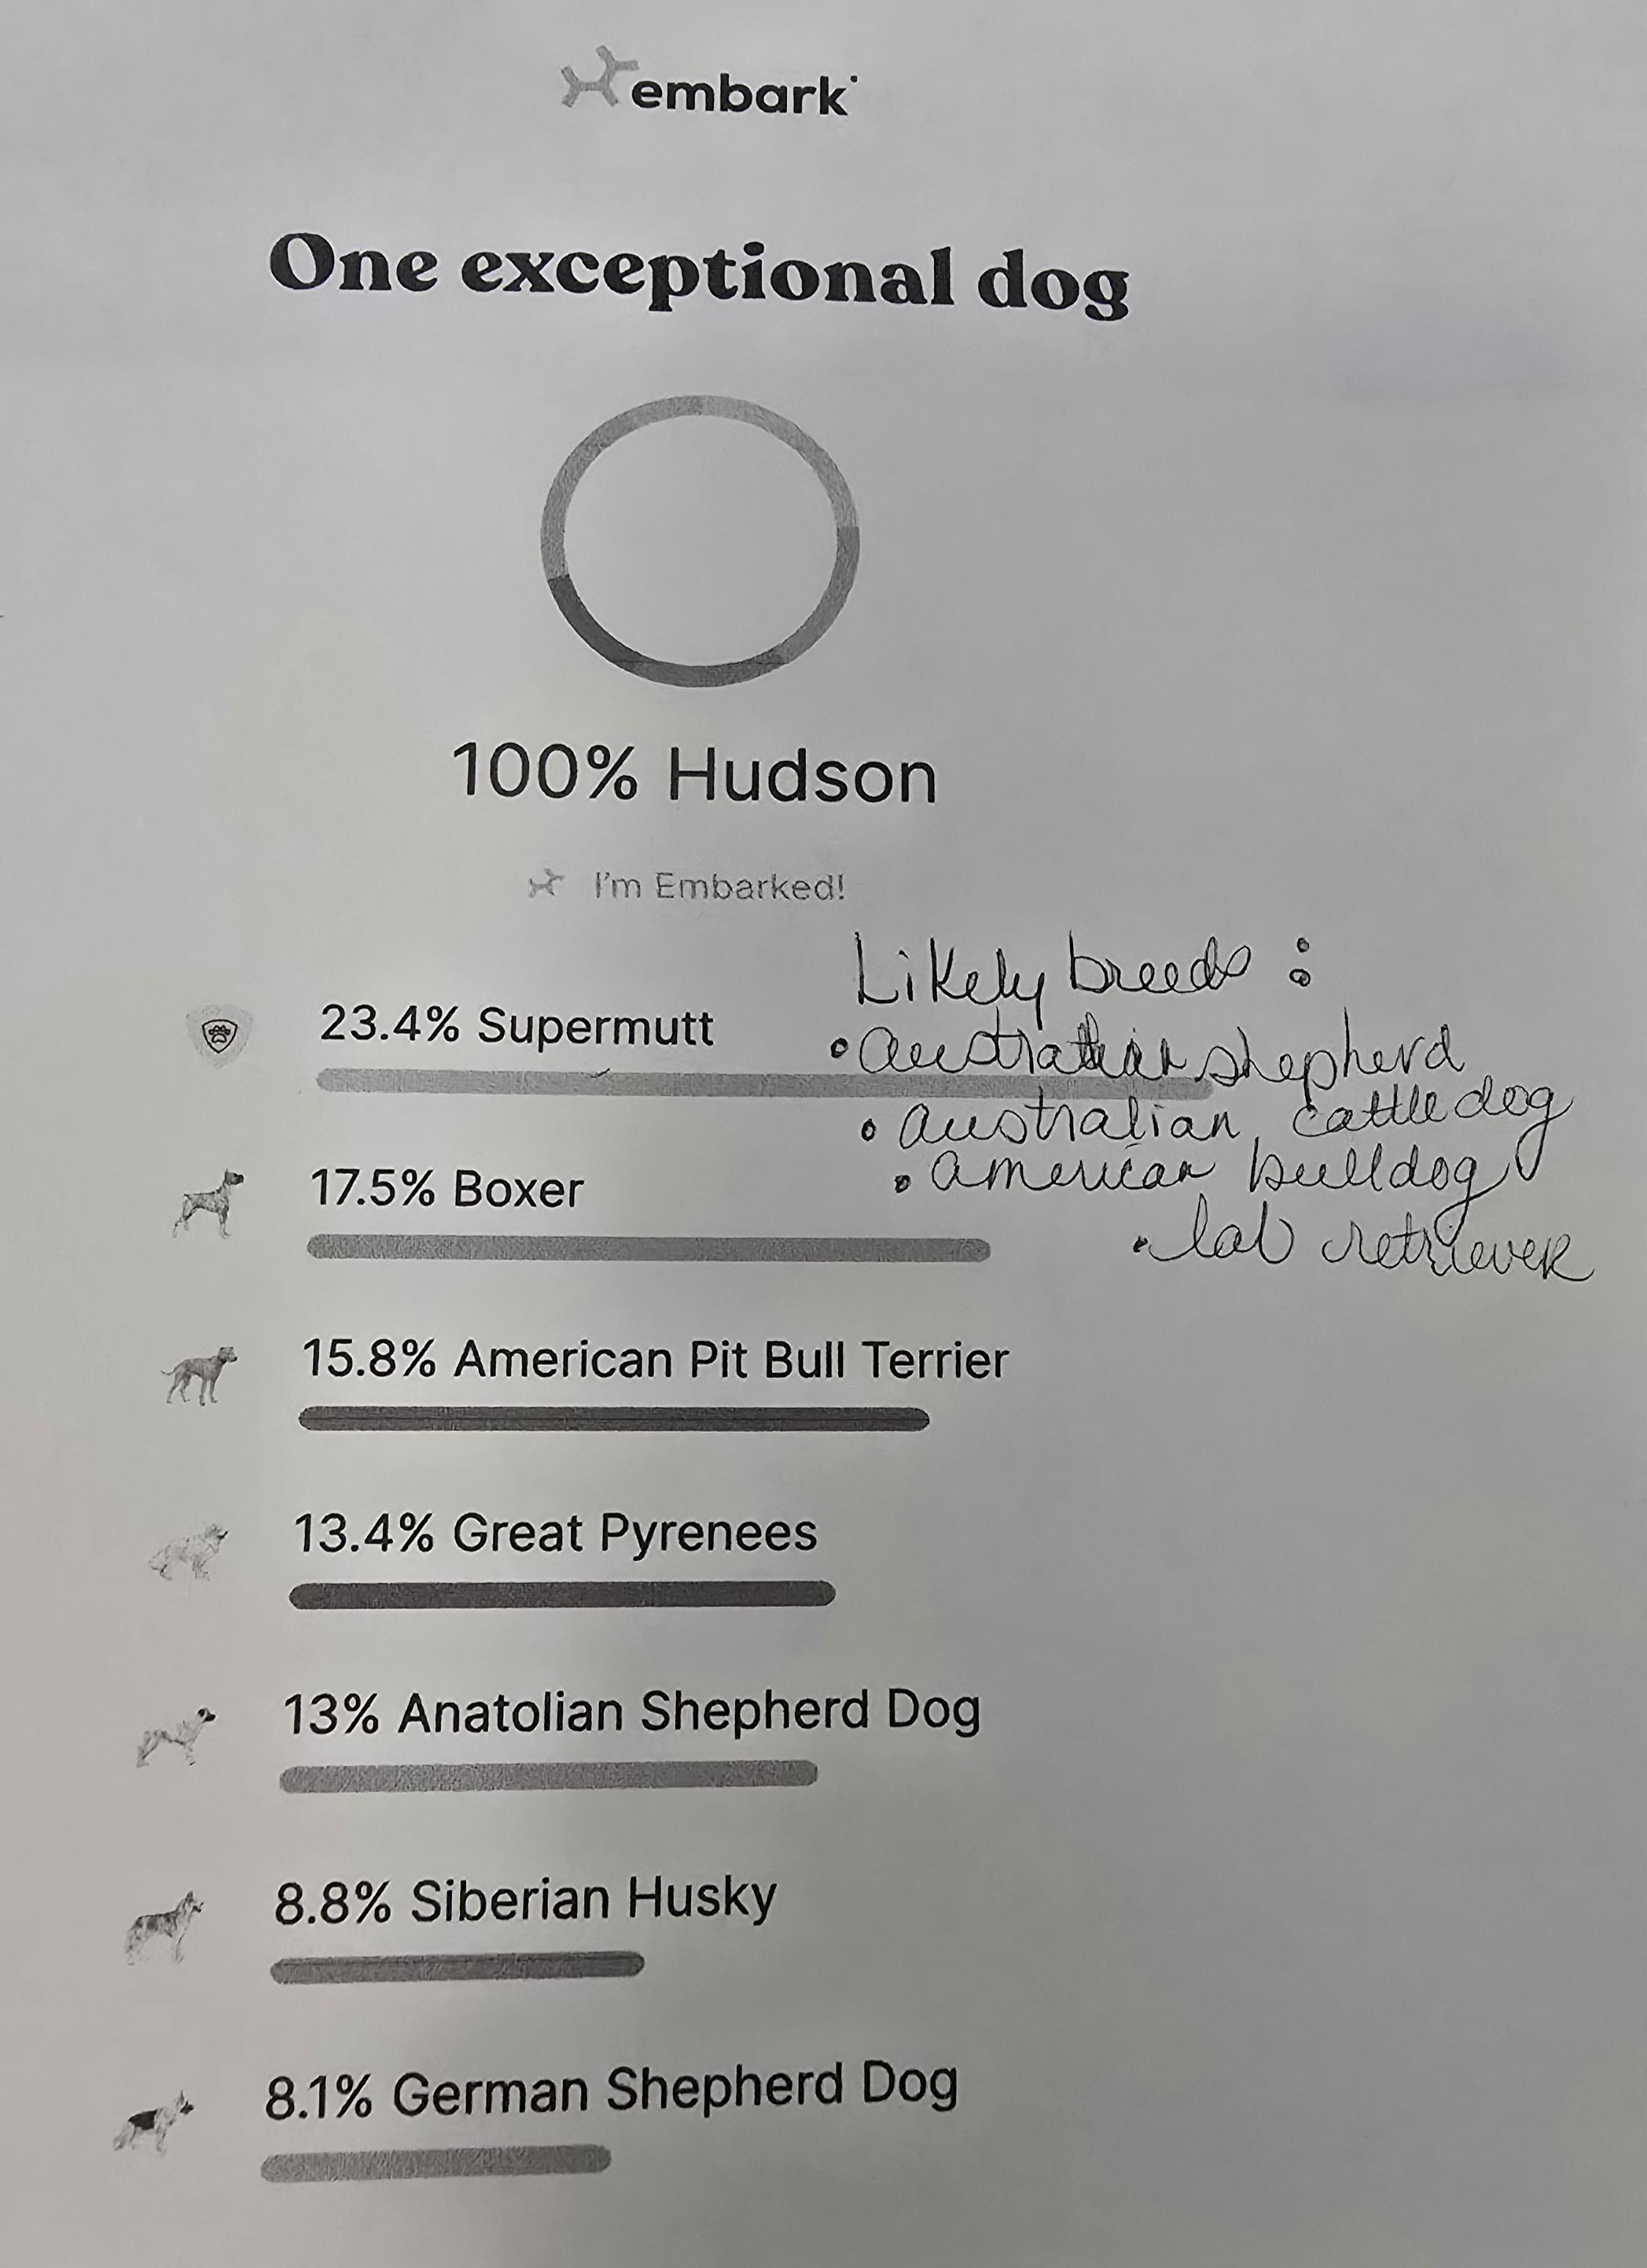 embark
One exceptional dog
100% Hudson
I'm Embarked!
Likely breeds :
23.4% Supermutt
• australian shepherd
• australian cattle dog
• american bulldog
• lab retriever
17.5% Boxer
15.8% American Pit Bull Terrier
13.4% Great Pyrenees
13% Anatolian Shepherd Dog
8.8% Siberian Husky
8.1% German Shepherd Dog